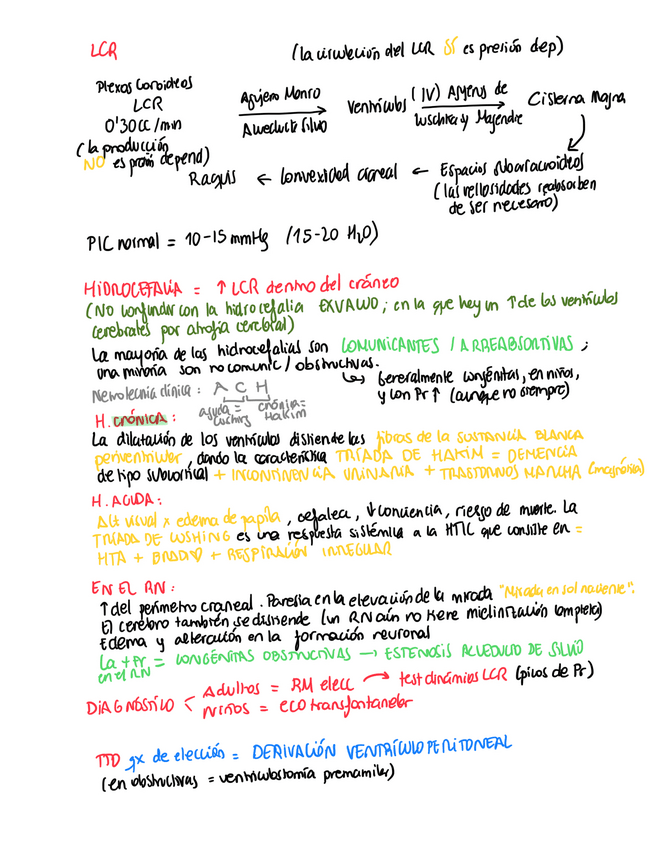 LCR
(la circulación del LCR SÍ es presión dep)
Plexos Coroideos
LCR
0'30cc/min
(la producción
NO es presión depend)
Agujero Monro
Acueducto Silvio
Ventrículos (IV)
Agujeros de
Luschka y Magendie
Cisterna Magna
Espacios Subaracnoideos
(las vellosidades reabsorben
de ser necesario)
← Convexidad craneal ←
Raquis
PIC normal = 10-15 mmHg (15-20 H2O)
HIDROCEFALIA = ↑ LCR dentro del cráneo
(NO confundir con la hidrocefalia EXVACUO; en la que hay un ↑ de los ventrículos
cerebrales por atrofia cerebral)
La mayoría de las hidrocefalias son COMUNICANTES / ARREABSORTIVAS ;
una minoría son no comunic / obstructivas.
↳ Generalmente congénital, en niños,
y con Pr ↑ (aunque no siempre)
Nemotecnia clínica : A C H
aguda =
Cushing
crónica =
Hakim
H. CRÓNICA :
La dilatación de los ventrículos distiende las fibras de la SUSTANCIA BLANCA
periventricular, dando la característica TRÍADA DE HAKIM = DEMENCIA
de tipo subcortical + INCONTINENCIA URINARIA + TRASTORNOS MARCHA (magnética)
H. AGUDA :
Alt visual x edema de papila, cefalea, ↓ conciencia, riesgo de muerte. La
TRÍADA DE CUSHING es una respuesta sistémica a la HTIC que consiste en =
HTA + BRADIQ + RESPIRACIÓN IRREGULAR
EN EL RN :
↑ del perímetro craneal. Paresia en la elevación de la mirada "Mirada en sol naciente".
El cerebro también se distiende (un RN aún no tiene mielinización completa)
Edema y alteración en la formación neuronal
La + Fr
en el RN = CONGÉNITAS OBSTRUCTIVAS → ESTENOSIS ACUEDUCTO DE SILVIO
DIAGNÓSTICO <
Adultos = RM elecc → test dinámicas LCR (picos de Pr)
Niños = eco transfontanelar
TTO qx de elección = DERIVACIÓN VENTRÍCULOPERITONEAL
(en obstructivas = ventriculostomía premamilar)